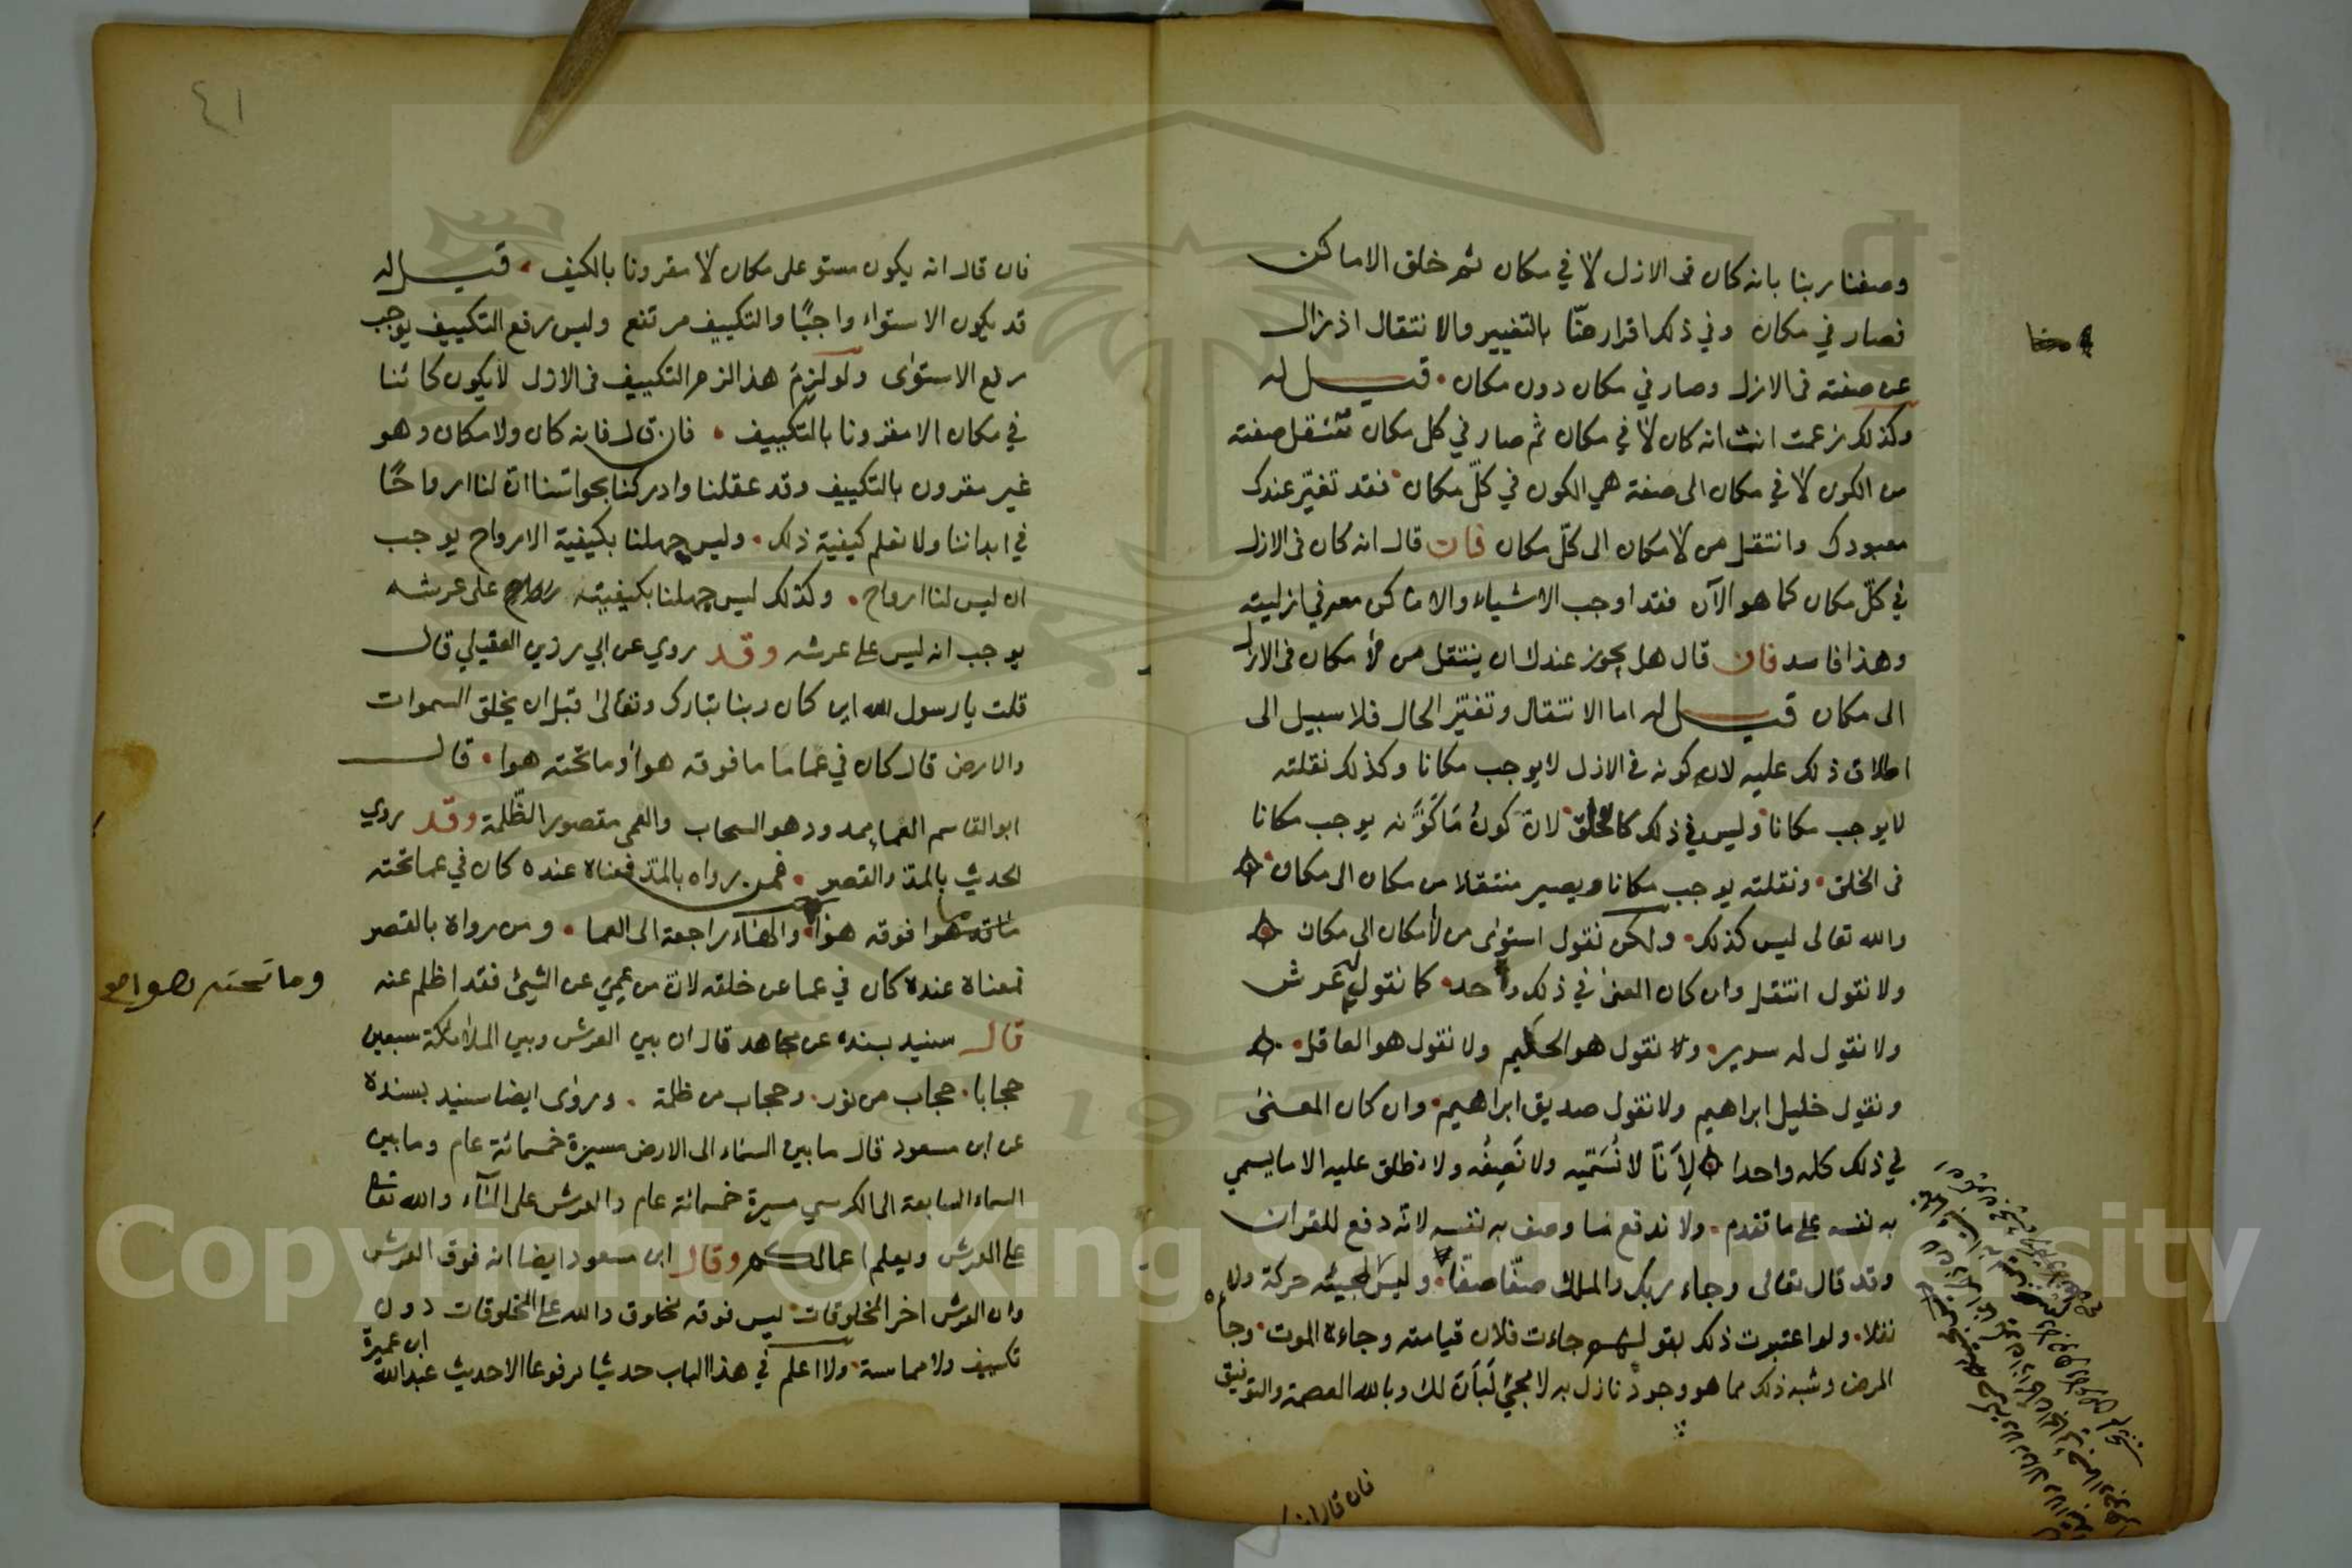 وصفنا ربنا بانه كان فى الازل لا في مكان ثم خلق الاماكن
فصار في مكان وفي ذلك اقرار منّا بالتغيير والانتقال اذ زال
عن صفته فى الازل وصار في مكان دون مكان قيل له
وكذلك زعمت انت انه كان لا في مكان ثم صار في كل مكان تنتقل صفته
من الكون لا في مكان الى صفة هي الكون في كلّ مكان فقد تغيّر عندك
معبودك وانتقل من لامكان الى كلّ مكان فان قال انه كان فى الازل
في كلّ مكان كما هو الآن فقد اوجب الاشياء والاماكن معه في ازليته
وهذا فاسد فان قال هل يجوز عندك ان ينتقل من لا مكان فى الازل
الى مكان قيل له اما الانتقال وتغيّر الحال فلا سبيل الى
اطلاق ذلك عليه لان كونه فى الازل لا يوجب مكانا وكذلك نقلته
لا يوجب مكانا وليس في ذلك كالخلق لانّ كون ما كوّنه يوجب مكانا
فى الخلق ونقلته يوجب مكانا ويصير منتقلا من مكان الى مكان
والله تعالى ليس كذلك ولكن نقول استوى من لا مكان الى مكان
ولا نقول انتقل وان كان المعنى في ذلك واحد كما نقول له عرش
ولا نقول له سرير ولا نقول هو الحكيم ولا نقول هو العاقل
ونقول خليل ابراهيم ولا نقول صديق ابراهيم وان كان المعنى
في ذلك كله واحدا لِأَنّا لا نُسَمّيه ولا نَصِفُه ولا نطلق عليه الا ما يسمي
به نفسه على ما تقدم ولا ندفع ما وصف به نفسه لانه دفع للقران
وقد قال تعالى وجاء ربك والملك صفّا صفّا وليس مجيئه حركة ولا
نقلا ولو اعتبرت ذلك بقولهم جاءت فلان قيامته وجاءه الموت وجاءه
المرض وشبه ذلك مما هو وجود نازل به لا مجئ لَبَانَ لك وبالله العصمة والتوفيق
فان قال انه
٤١
فان قال انه يكون مستو على مكان لا مقرونا بالكيف قيل له
قد يكون الاستواء واجبًا والتكييف مرتفع وليس رفع التكييف يوجب
رفع الاستوى ولو لزم هذا لزم التكييف فى الازل لا يكون كائنا
في مكان الا مقرونا بالتكييف فان قال فانه كان ولا مكان وهو
غير مقرون بالتكييف وقد عقلنا وادركنا بحواسّنا انّ لنا ارواحًا
في ابداننا ولا نعلم كيفية ذلك وليس جهلنا بكيفية الارواح يوجب
ان ليس لنا ارواح وكذلك ليس جهلنا بكيفيته على عرشه
يوجب انه ليس على عرشه وقد روي عن ابي رزين العقيلي قال
قلت يا رسول الله اين كان ربنا تبارك وتعالى قبل ان يخلق السموات
والارض قال كان في عما ما فوقه هوا وما تحته هوا قال
ابو القاسم العماء ممدود هو السحاب والعمى مقصور الظّلمة وقد روي
الحديث بالمدّ والقصر فمن رواه بالمدّ فمعناه عنده كان في عما تحته
هوا فوقه هوا والهاء راجعة الى العما ومن رواه بالقصر
وما تحته هوا صح
فمعناه عنده كان في عما عن خلقه لانّ من عمي عن الشيئ فقد اظلم عنه
قال سنيد بسنده عن مجاهد قال ان بين العرش وبين الملائكة سبعين
حجابا حجاب من نور وحجاب من ظلمة وروى ايضا سنيد بسنده
عن ابن مسعود قال ما بين السماء الى الارض مسيرة خمسمائة عام وما بين
السماء السابعة الى الكرسي مسيرة خمسمائة عام والعرش على المآء والله تعالى
على العرش ويعلم اعمالكم وقال ابن مسعود ايضا انه فوق العرش
وان العرش اخر المخلوقات ليس فوقه مخلوق والله على المخلوقات دون
تكييف ولا مماسة ولا اعلم في هذا الباب حديثا مرفوعا الا حديث عبد الله
ابن عميرة
Copyright © King Saud University
1957